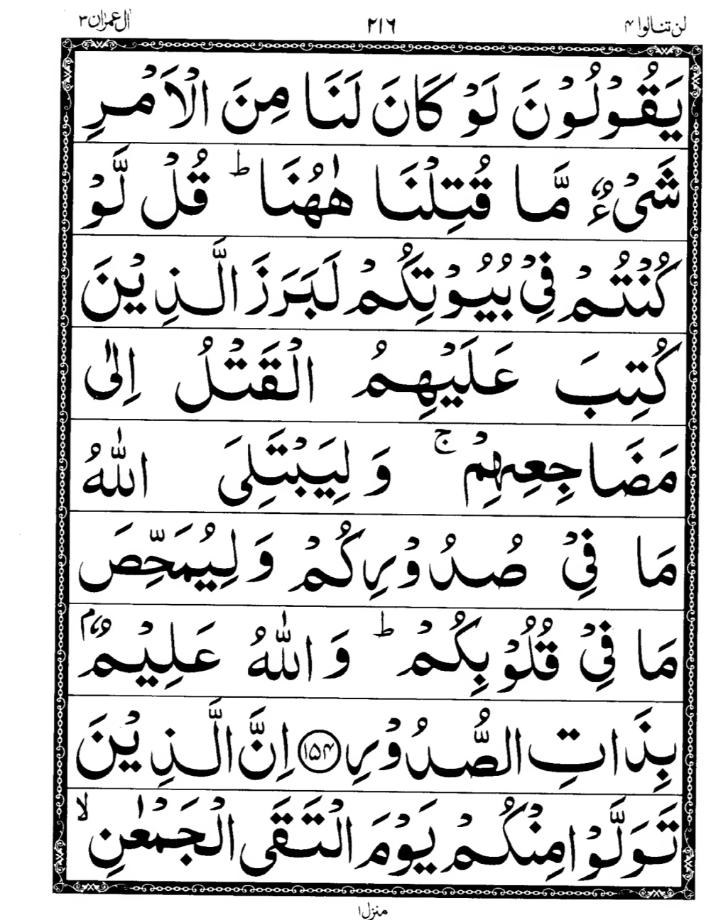 لن تنالوا ۴ ۲۱۶ اٰل عمرٰن ۳
يَقُوْلُوْنَ لَوْ كَانَ لَنَا مِنَ الْاَمْرِ
شَىْءٌ مَّا قُتِلْنَا هٰهُنَا ؕ قُلْ لَّوْ
كُنْتُمْ فِىْ بُيُوْتِكُمْ لَبَرَزَ الَّذِيْنَ
كُتِبَ عَلَيْهِمُ الْقَتْلُ اِلٰى
مَضَاجِعِهِمْ ۚ وَ لِيَبْتَلِىَ اللّٰهُ
مَا فِىْ صُدُوْرِكُمْ وَ لِيُمَحِّصَ
مَا فِىْ قُلُوْبِكُمْ ؕ وَ اللّٰهُ عَلِيْمٌۢ
بِذَاتِ الصُّدُوْرِ ﴿۱۵۴﴾ اِنَّ الَّذِيْنَ
تَوَلَّوْا مِنْكُمْ يَوْمَ الْتَقَى الْجَمْعٰنِ ۙ
منزل ۱